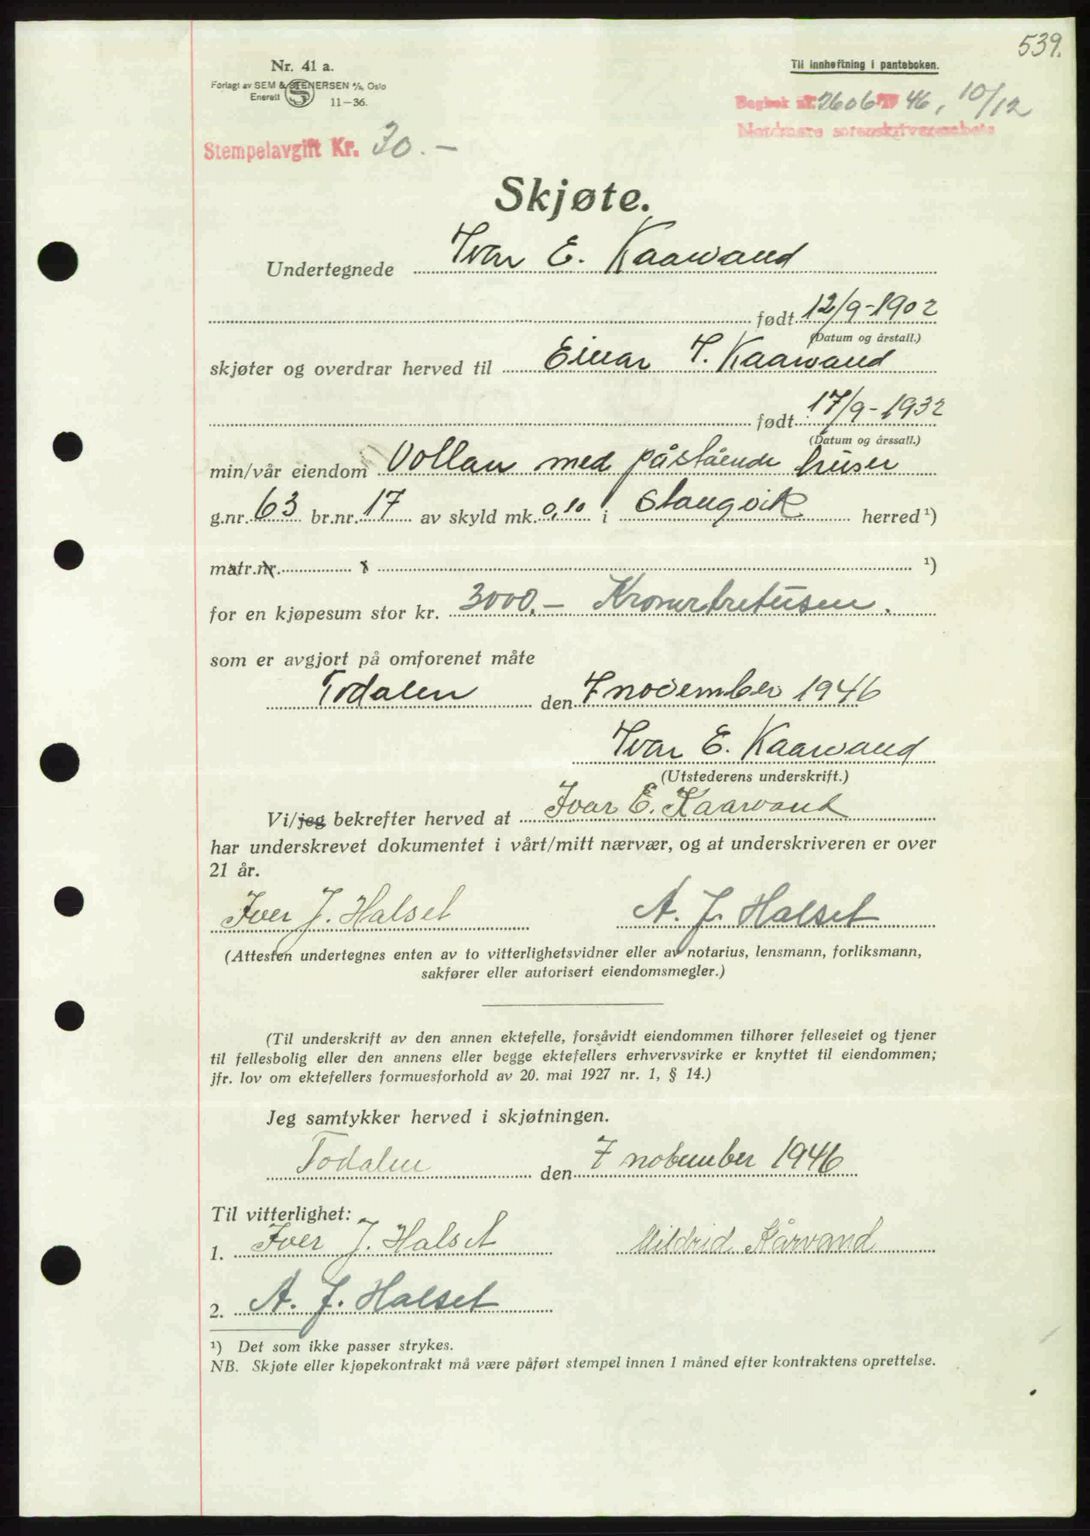 539.
Nr. 41 a.
Forlagt av SEM & STENERSEN A/S, Oslo
Enerett S 11-36.
Til innheftning i panteboken.
Dagbok nr. 2606 19 46, 10/12
Nordmøre sorenskriverembete
Stempelavgift Kr. 30.-
Skjøte.
Undertegnede Ivar E. Kaarvand
født 12/9-1902
(Datum og årstall.)
skjøter og overdrar herved til Einar I. Kaarvand
født 17/9-1932
(Datum og årssall.)
min/vår eiendom Vollan med påstående huser
g.nr. 63 br.nr. 17 av skyld mk. 0,10 i Stangvik herred ¹)
matr.nr. i ¹)
for en kjøpesum stor kr. 3000.- Kronertretusen.
som er avgjort på omforenet måte
Todalen den 7 november 1946
Ivar E. Kaarvand
(Utstederens underskrift.)
Vi/jeg bekrefter herved at Ivar E. Kaarvand
har underskrevet dokumentet i vårt/mitt nærvær, og at underskriveren er over
21 år.
Iver J. Halset A. J. Halset
(Attesten undertegnes enten av to vitterlighetsvidner eller av notarius, lensmann, forliksmann,
sakfører eller autorisert eiendomsmegler.)
(Til underskrift av den annen ektefelle, forsåvidt eiendommen tilhører felleseiet og tjener
til fellesbolig eller den annens eller begge ektefellers erhvervsvirke er knyttet til eiendommen;
jfr. lov om ektefellers formuesforhold av 20. mai 1927 nr. 1, § 14.)
Jeg samtykker herved i skjøtningen.
Todalen den 7 nobember 1946
Til vitterlighet:
1. Iver J. Halset Mildrid Kårvand
2. A. J. Halset
¹) Det som ikke passer strykes.
NB. Skjøte eller kjøpekontrakt må være påført stempel innen 1 måned efter kontraktens oprettelse.